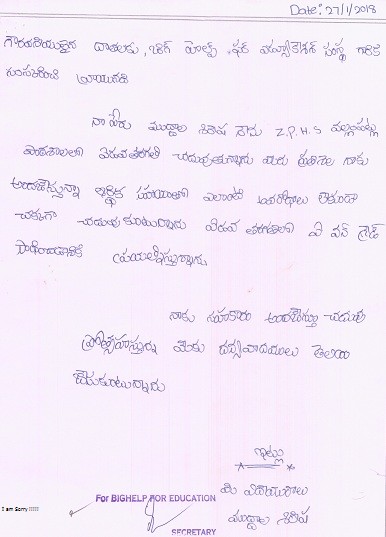 Date: 27/1/2018
గౌరవనీయులైన దాతలకు, బిగ్ హెల్ప్ ఫర్ ఎడ్యుకేషన్ సంస్థ గారికి
నమస్కరించి వ్రాయునది
నా పేరు ముద్దాల శిరీష నేను Z.P.H.S
పాఠశాలలో పదవ తరగతి చదువుతున్నాను మీరు ప్రతినెల నాకు
అందజేస్తున్న ఆర్థిక సహాయంతో ఎలాంటి అవరోధాలు లేకుండా
చక్కగా చదువుకుంటున్నాను పదవ తరగతిలో ఏ వన్ గ్రేడ్
సాధించడానికి ప్రయత్నిస్తున్నాను
నాకు సహకారం అందజేస్తూ చదువు
ప్రోత్సహిస్తున్న మీకు ధన్యవాదములు తెలియ
చేసుకుంటున్నాను
ఇట్లు
మీ విదేయురాలు
ముద్దాల శిరీష
For BIGHELP FOR EDUCATION
SECRETARY
I am Sorry !!!!!